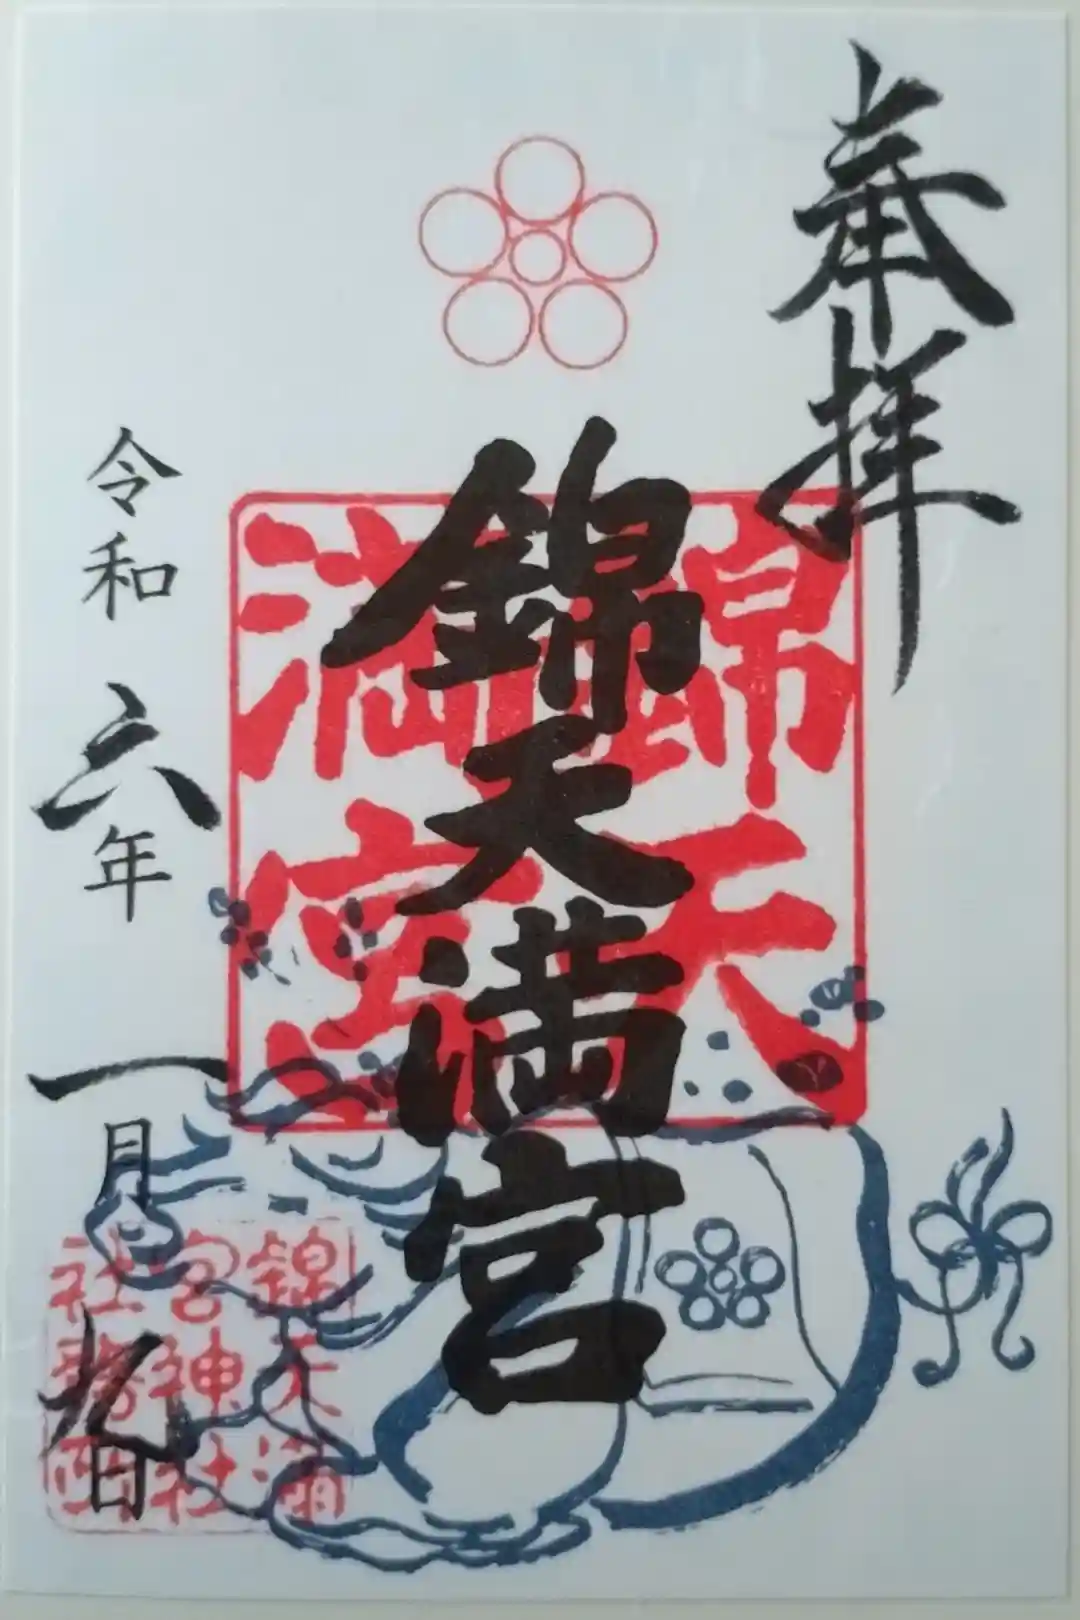 奉拝
錦天満宮
錦天
満宮
令和六年一月九日
錦天満
宮神社
社務西